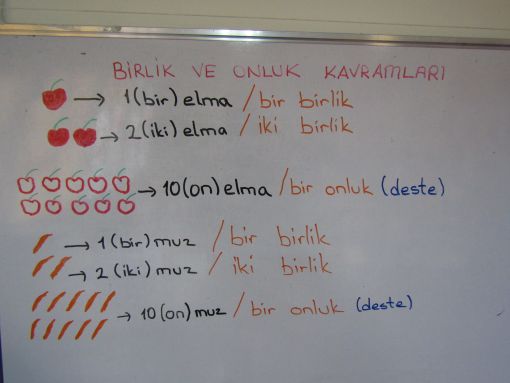 BİRLİK VE ONLUK KAVRAMLARI
→ 1(bir) elma / bir birlik
→ 2(iki) elma / iki birlik
→ 10(on) elma / bir onluk (deste)
→ 1(bir) muz / bir birlik
→ 2(iki) muz / iki birlik
→ 10(on) muz / bir onluk (deste)